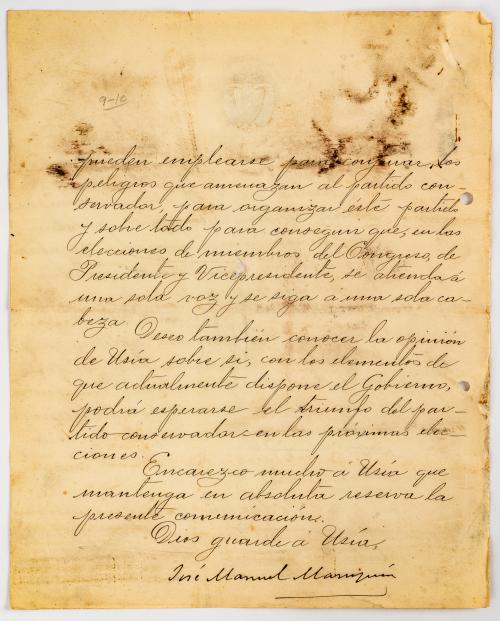 9-10
pueden emplearse para conjurar los
peligros que amenazan al partido con-
servador, para organizar éste partido
y sobre todo para conseguir que, en las
elecciones de miembros del Congreso, de
Presidente y Vicepresidente, se atienda á
una sola voz y se siga á una sola ca-
beza.
Deseo también conocer la opinión
de Usía sobre si, con los elementos de
que actualmente dispone el Gobierno,
podrá esperarse el triunfo del par-
tido conservador en las próximas elec-
ciones.
Encarezco mucho á Usía que
mantenga en absoluta reserva la
presente comunicación.
Dios guarde á Usía,
José Manuel Marroquín